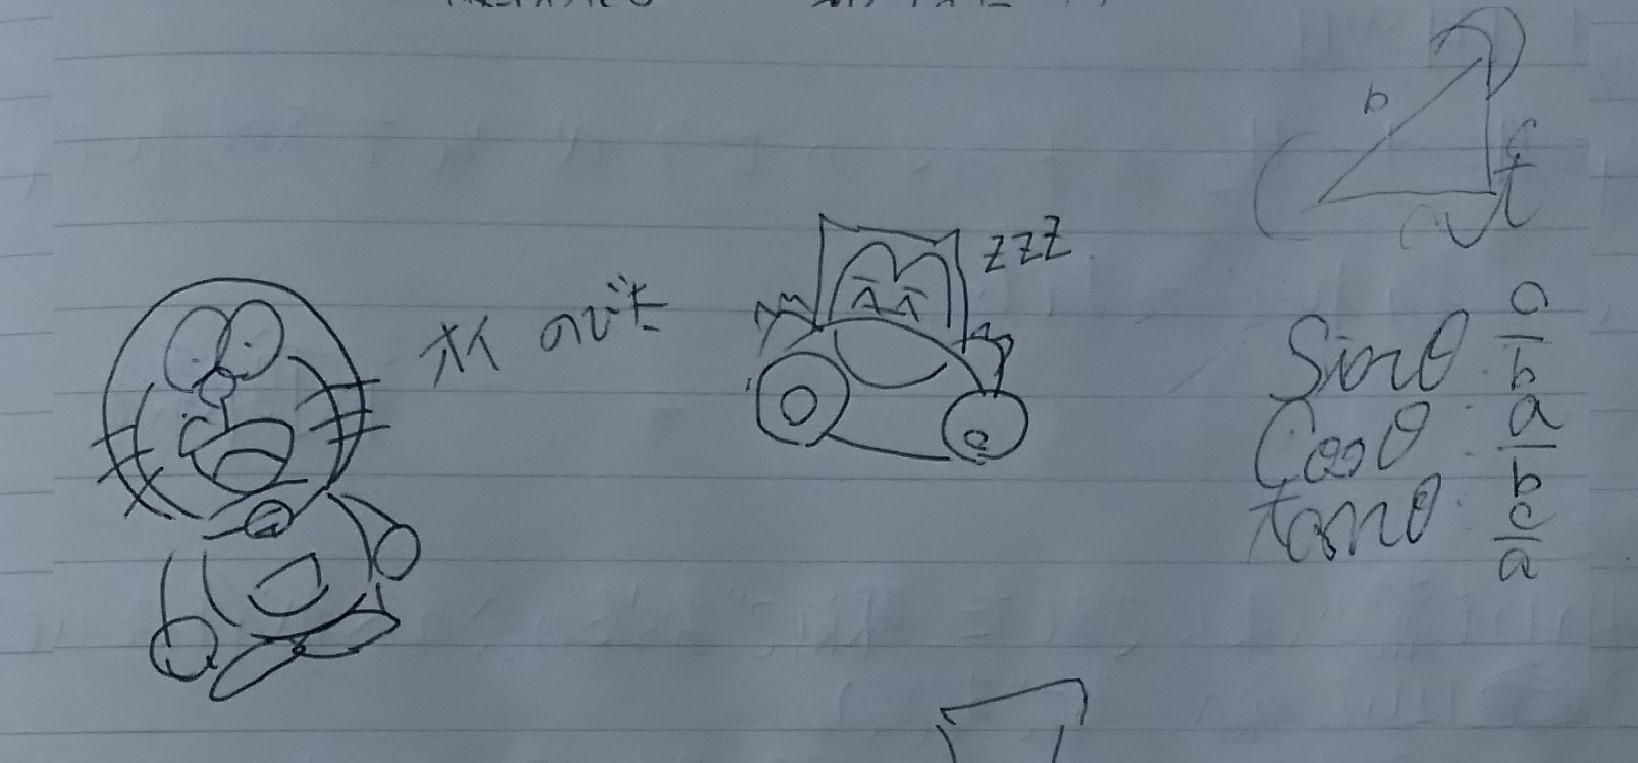 オイ のび太
zzz
b
Sinθ c/b
Cosθ a/b
tanθ c/a